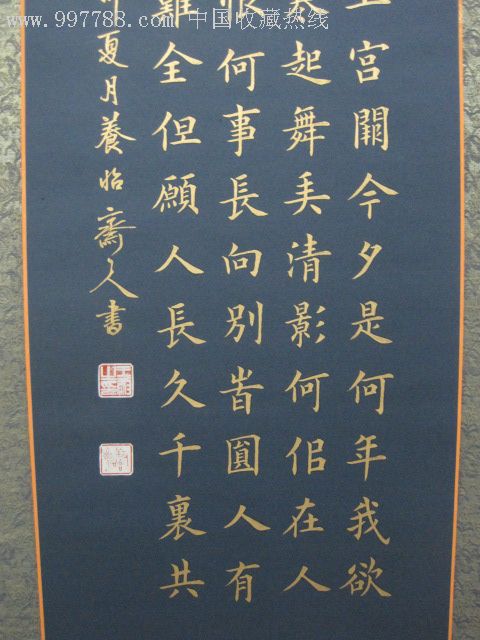 www.997788.com 中国收藏热线
宮闕今夕是何年我欲
起舞弄清影何佀在人
恨何事長向別旹圓人有
難全但願人長久千裏共
夏月養怡齋人書